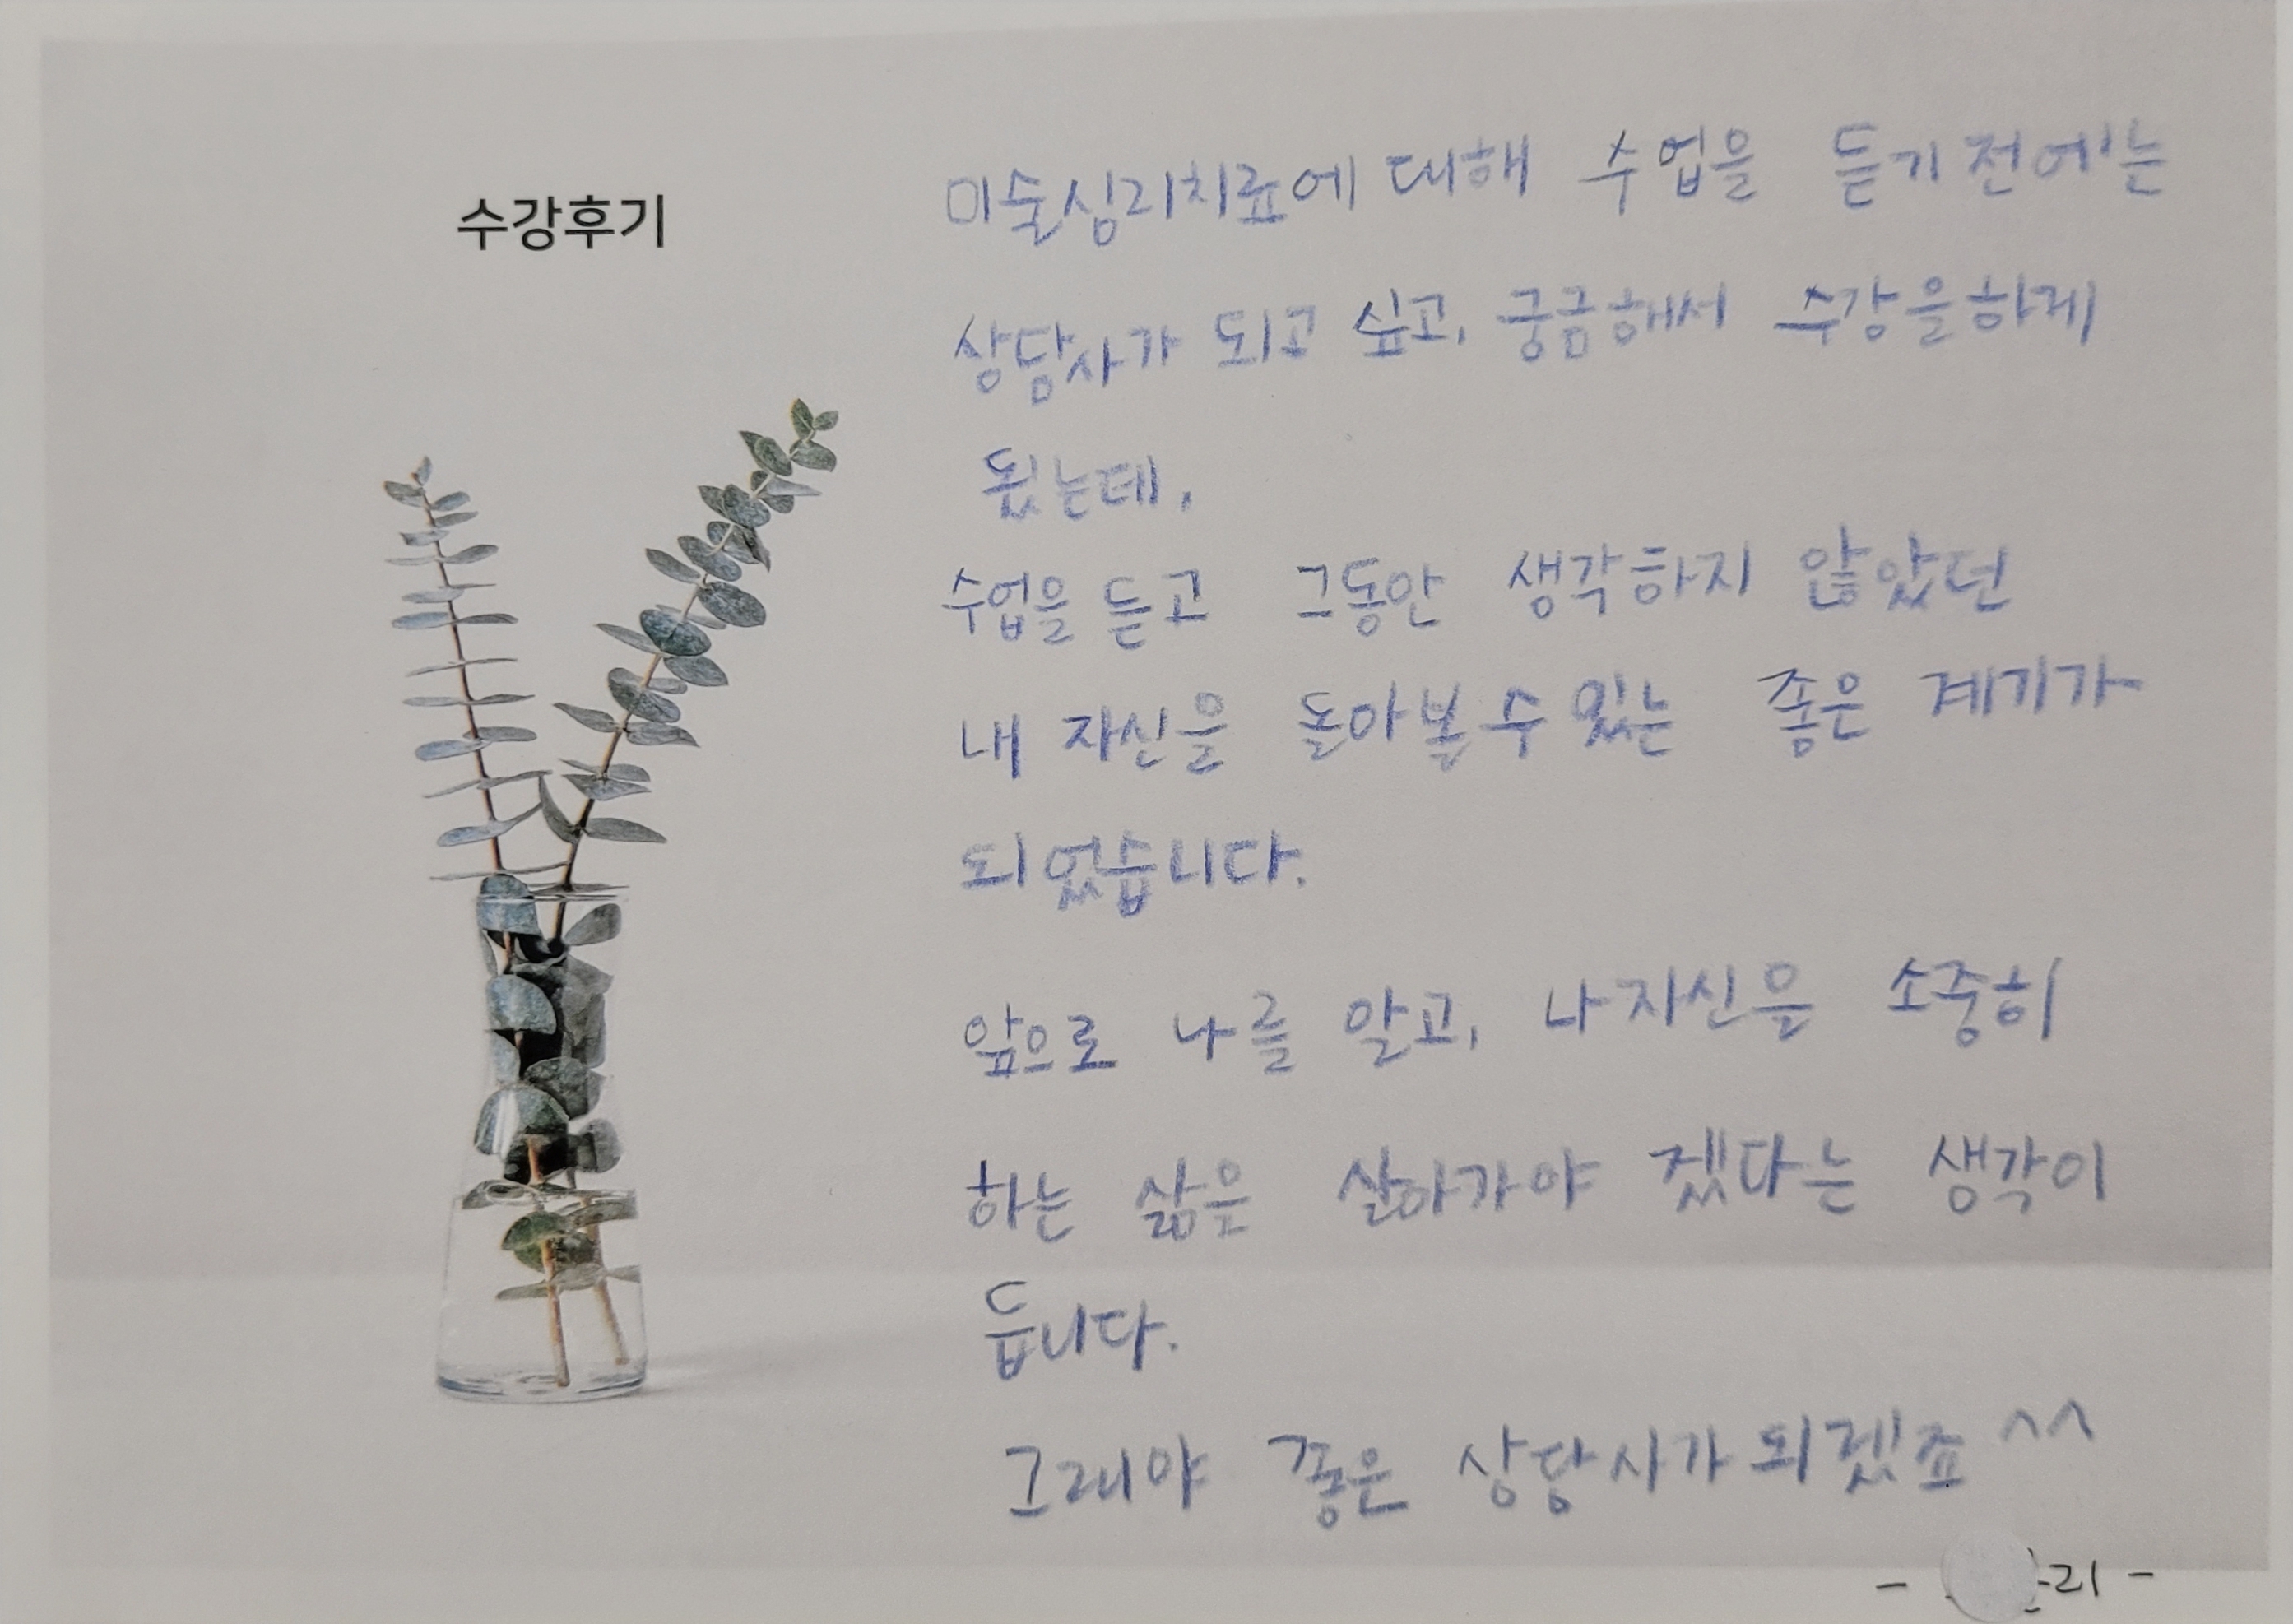 수강후기
미술심리치료에 대해 수업을 듣기 전에는
상담사가 되고 싶고, 궁금해서 수강을 하게
됬는데,
수업을 듣고 그동안 생각하지 않았던
내 자신을 돌아볼 수 있는 좋은 계기가
되었습니다.
앞으로 나를 알고, 나 자신을 소중히
하는 삶을 살아가야 겠다는 생각이
듭니다.
그래야 좋은 상담사가 되겠죠 ^^